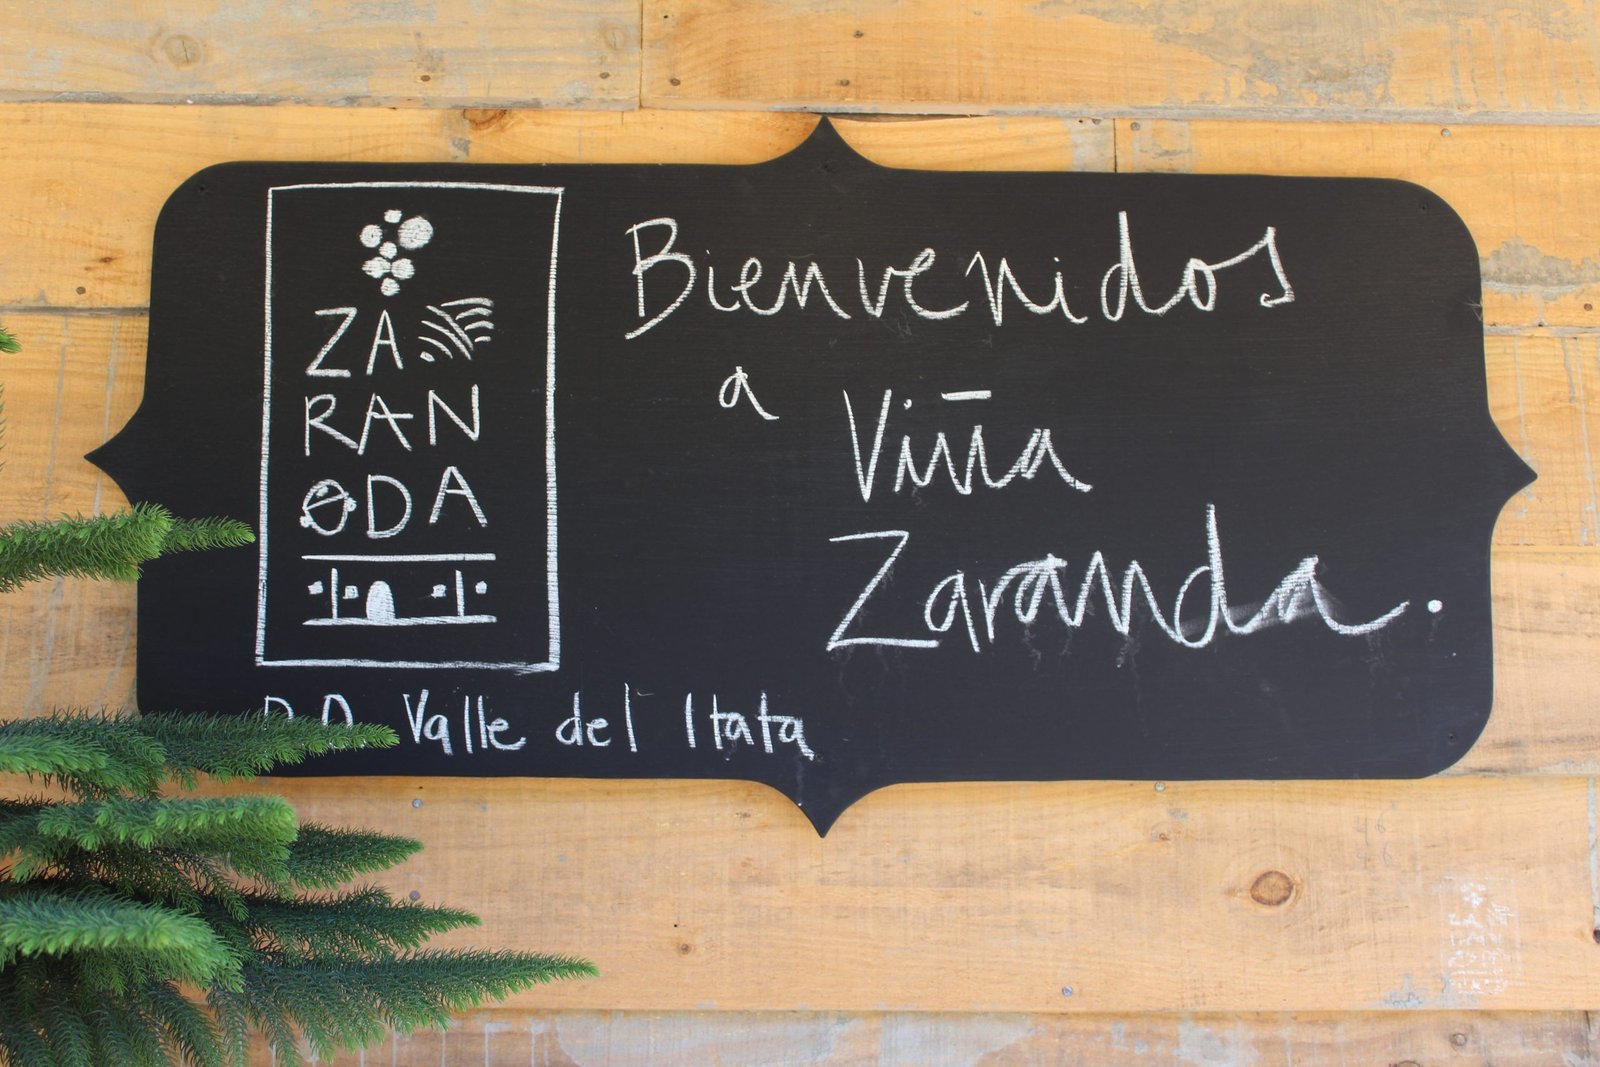 ZA
RAN
ODA
D.O. Valle del Itata
Bienvenidos
a Viña
Zaranda.